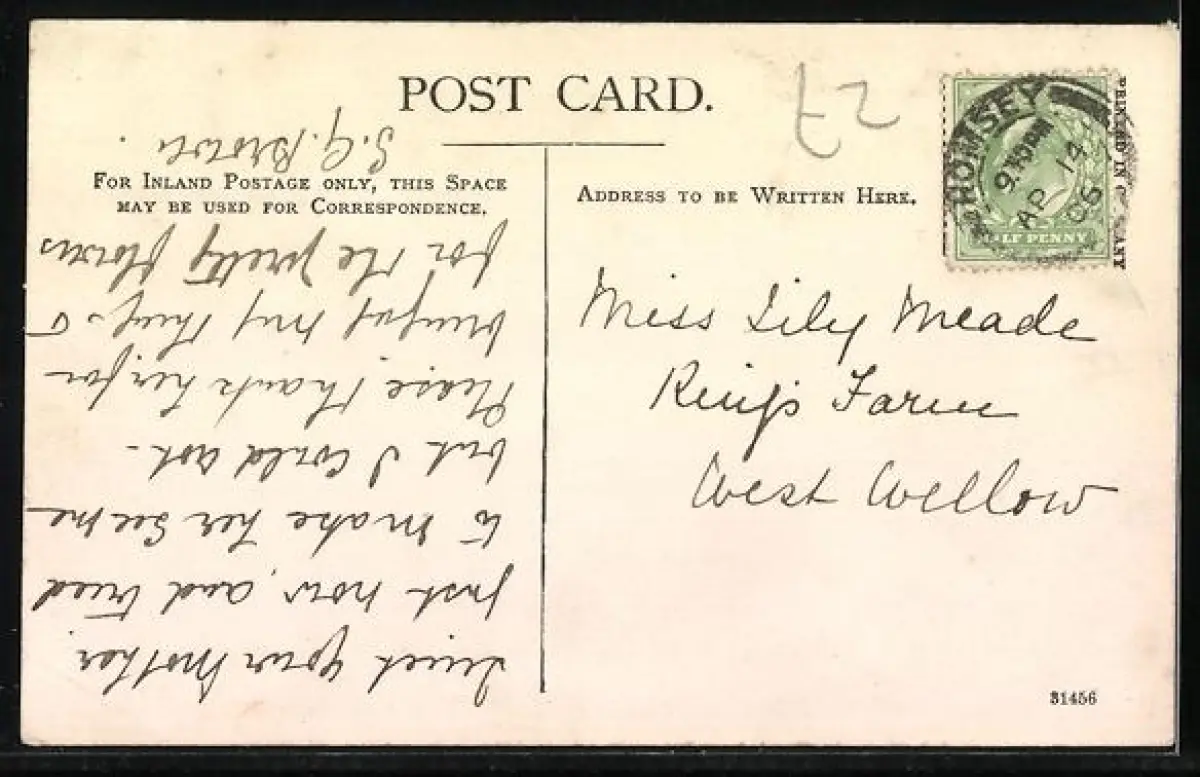 POST CARD.
27
FOR INLAND POSTAGE ONLY, THIS SPACE
MAY BE USED FOR CORRESPONDENCE.
ADDRESS TO BE WRITTEN HERE.
ROMSEY
AP 14
06
HALF PENNY
PRINTED IN GERMANY
Miss Lily Meade
King's Farm
West Wellow
your Mother
just now, and tried
to make her see me
but I could not -
Please thank her for
bringing my things &
for the pretty flowers
S. G. Brown.
31456